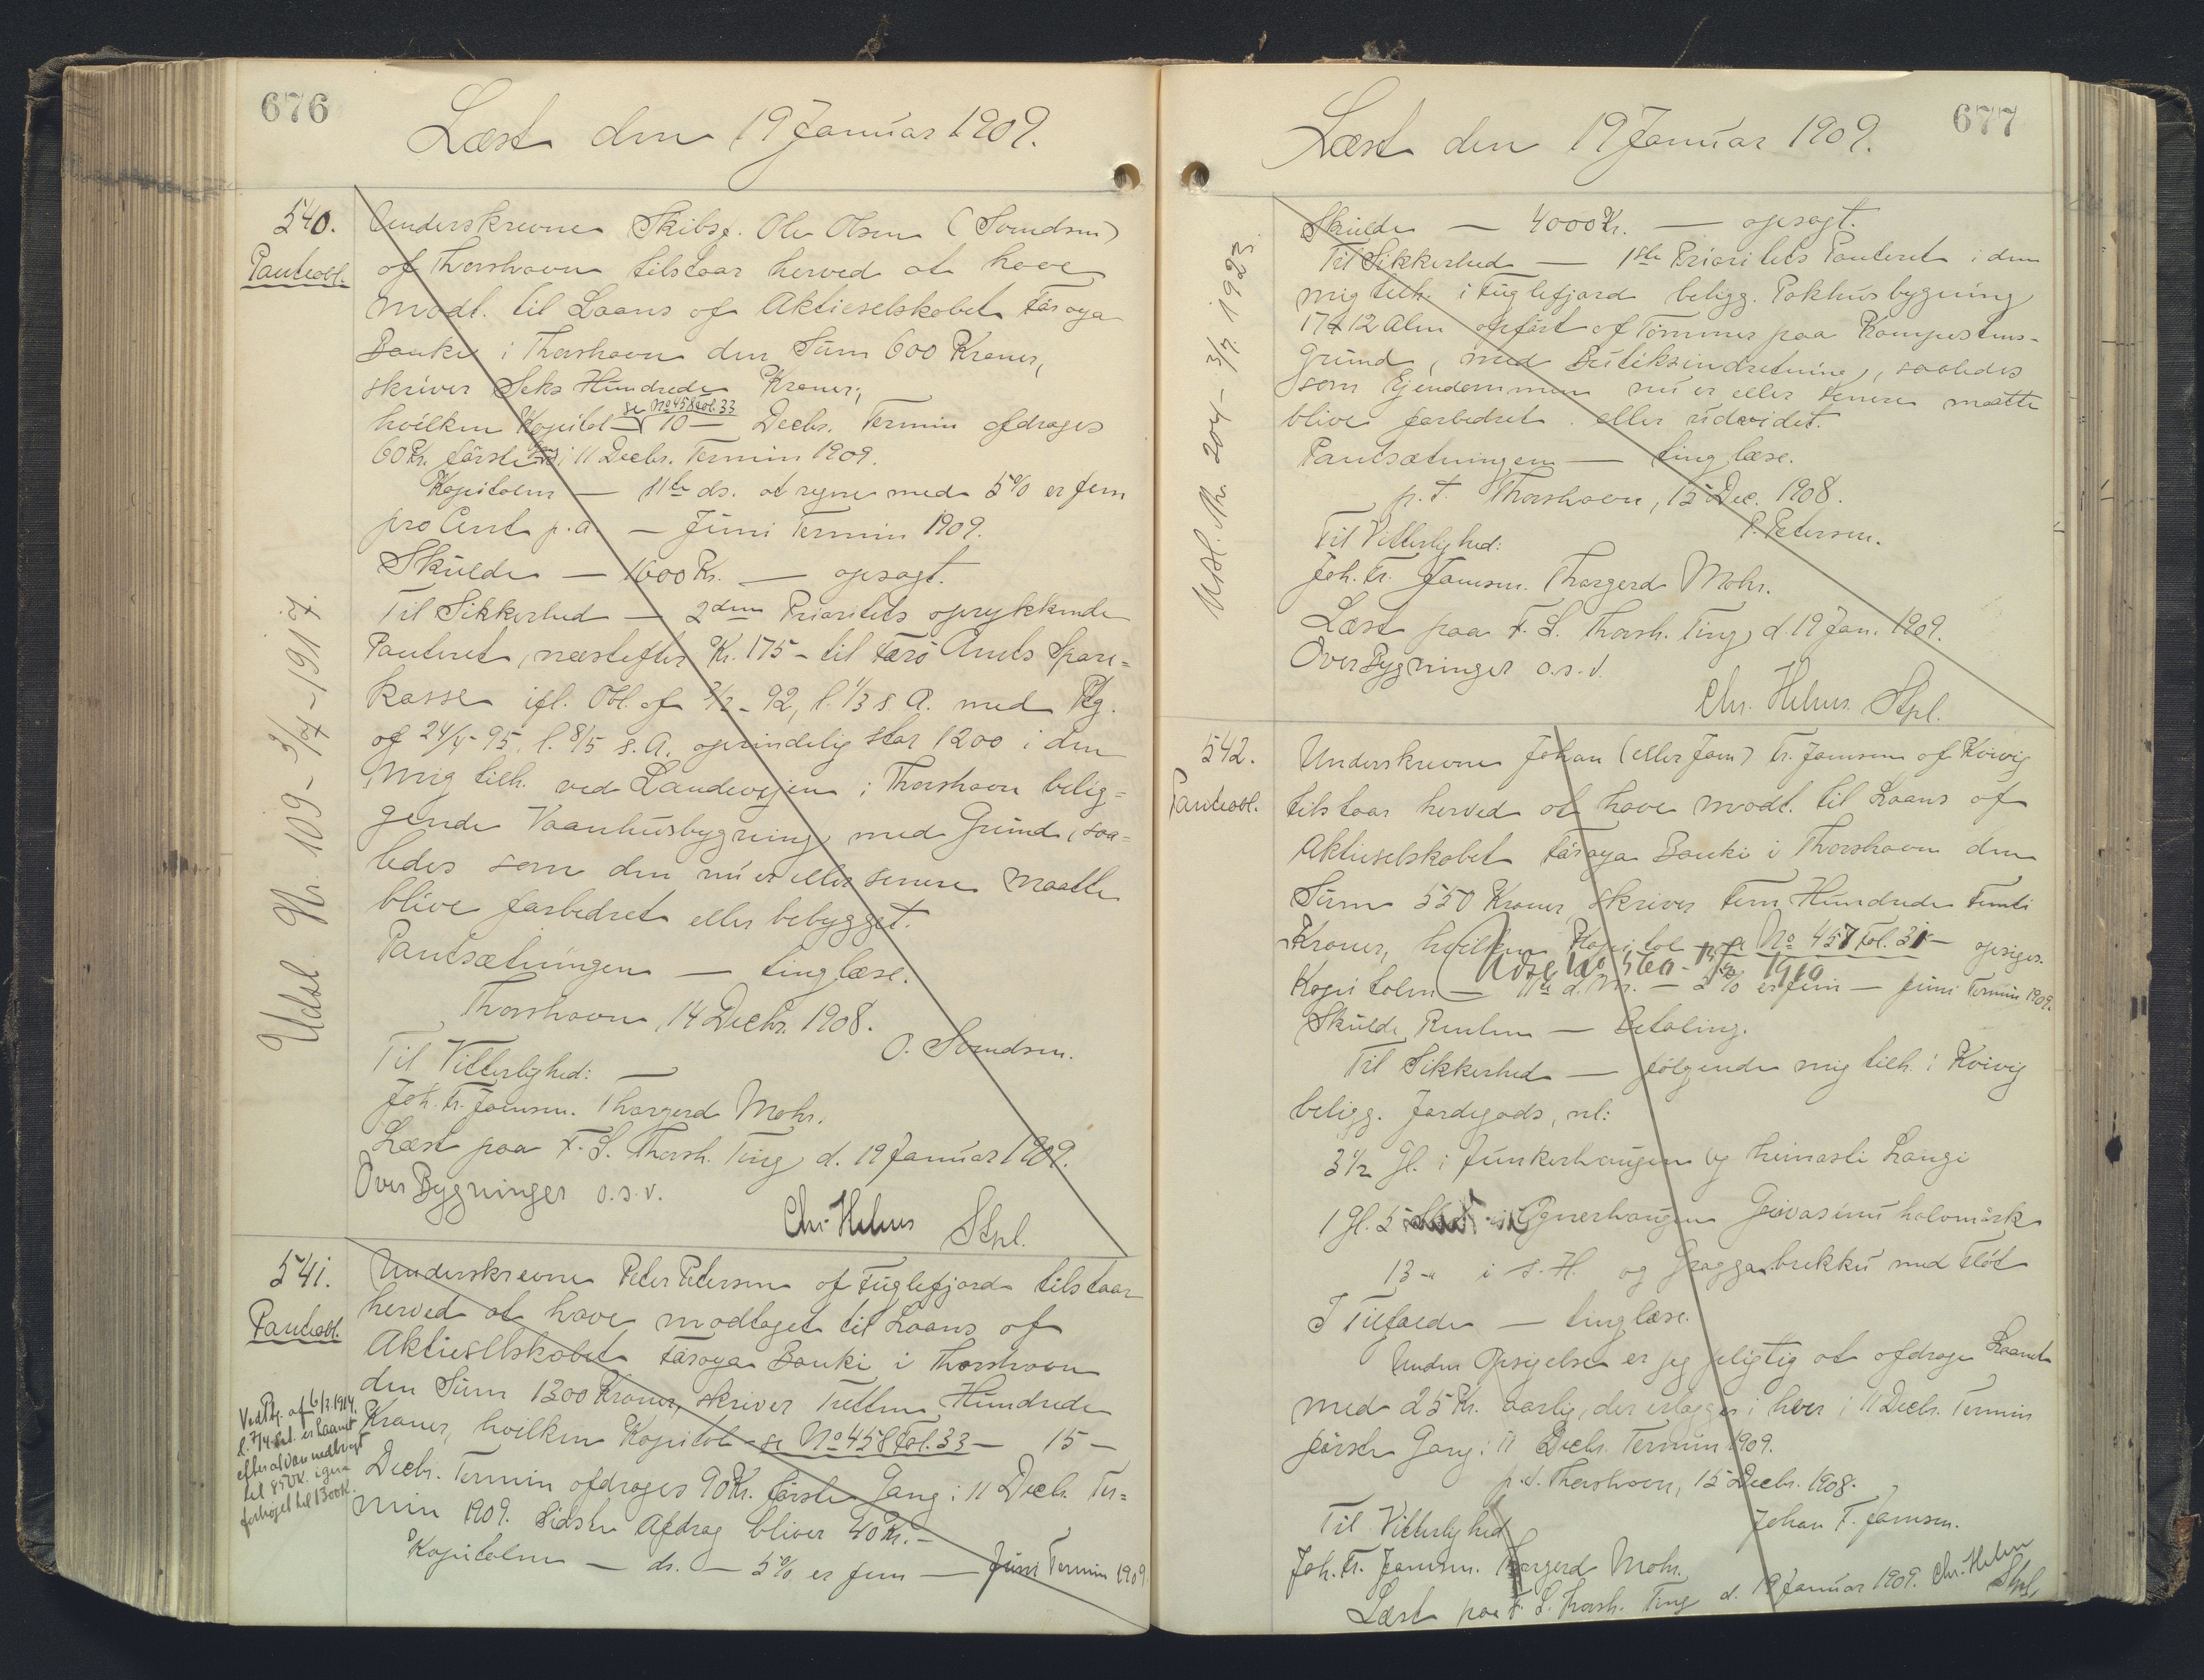 676
Læst den 19 Januar 1909.
540.
Panteobl.
Underskrevne Skibsf. Ole Olsen (Svendsen)
af Thorshavn tilstaar herved at have
modt. til Laans af Aktieselskabet Føroya
Banki i Thorshavn den Sum 600 Kroner,
skriver Seks Hundrede Kroner,
hvilken Kapital - se No 458 Fol. 33 10 — Decbr. Termin afdrages
60 Kr. første Gang i 11 Decbr. Termin 1909.
Kapitalen — 11te ds. at regne med 5% er fem
pro Cent p.a. — Juni Termin 1909.
Skulde — 1600 Kr. — opsagt.
Til Sikkerhed — 2den Prioritets oprykkende
Panteret, næstefter Kr. 175 - til Færø Amts Spare=
kasse ifl. Obl. af 3/2 - 92, l. 1/3 s. A. med Pg.
af 24/4 - 95, l. 8/5 s. A. oprindelig stor 1200 i den
mig tilh. ved Landevejen i Thorshavn belig=
gende Vaanhusbygning med Grund, saa=
ledes som den nu er eller senere maatte
blive forbedret eller bebygget.
Pantsætningen — tinglæse.
Thorshavn, 14 Decbr. 1908.
O. Svendsen.
Til Vitterlighed:
Joh. Fr. Joensen. Thorgerd Mohr.
Læst paa F. S. Thorsh. Ting d. 19 Januar 1909.
Over Bygninger o.s.v.
Chr. Helms Stpl.
Udsl. Nr. 109 - 3/7 - 1917.
541.
Panteobl.
Underskrevne Peter Petersen af Fuglefjord tilstaar
herved at have modtaget til Laans af
Aktieselskabet Føroya Banki i Thorshavn
den Sum 1300 Kroner, skriver Tretten Hundrede
Kroner, hvilken Kapital - se No 458 Fol. 33 — 15 —
Decbr. Termin afdrages 90 Kr. første Gang i 11 Decb. Ter=
min 1909. Sidste Afdrag bliver 40 Kr. —
Kapitalen — ds. — 5% er fem — Juni Termin 1909
Ved Pg. af 6/3 1914,
l. 7/4 s.A. er Laanet
efter at være nedbragt
til 850 K. igen
forhøjet til 1300 K.
677
Læst den 19 Januar 1909.
Skulde — 4000 Kr. — opsagt.
Til Sikkerhed — 1ste Prioritets Panteret i den
mig tilh. i Fuglefjord beligg. Pakhusbygning
17 x 12 Alen opført af Tømmer paa Kongestens-
grund, med Butiksindretning, saaledes
som Ejendommen nu er eller senere maatte
blive forbedret eller udvidet.
Pantsætningen — tinglæse.
p. t. Thorshavn, 15 Dec. 1908.
P. Petersen.
Til Vitterlighed:
Joh. Fr. Joensen. Thorgerd Mohr.
Læst paa F. S. Thorsh. Ting d. 19 Jan. 1909.
Over Bygninger o.s.v.
Chr. Helms. Stpl.
Udsl. Nr. 204 - 3/7. 1923.
542.
Panteobl.
Underskrevne Johan (eller Joen) Fr. Joensen af Kvivig
tilstaar herved at have modt. til Laans af
Aktieselskabet Føroya Banki i Thorshavn den
Sum 550 Kroner, skriver Fem Hundrede Femti
Kroner, hvilken Kapital — se No 457 Fol. 31 — opsiges.
Kapitalen — 11te d. M. — 5% er fem — Juni Termin 1909.
Skulde Renten — Betaling.
Til Sikkerhed — følgende mig tilh. i Kvivig
beligg. Jordegods, nl:
3 1/2 Gl. i Junkerhaugen og heimasti Haugi
1 Gl. 5 Ognerhaugen Grivasinu halvmörk
13 - i s. H. og Graggabrekku med Fløt
I Tilfælde — tinglæse.
Uden Opsigelse er jeg pligtig at afdrage Laanet
med 25 Kr. aarlig, der erlægges i hver i 11 Decbr. Termin
første Gang i 11 Decbr. Termin 1909.
p. t. Thorshavn, 15 Decbr. 1908.
Johan F. Joensen.
Til Vitterlighed
Joh. Fr. Joensen. Thorgerd Mohr.
Læst paa F. S. Thorsh. Ting d. 19 Januar 1909. Chr. Helms
Stpl.